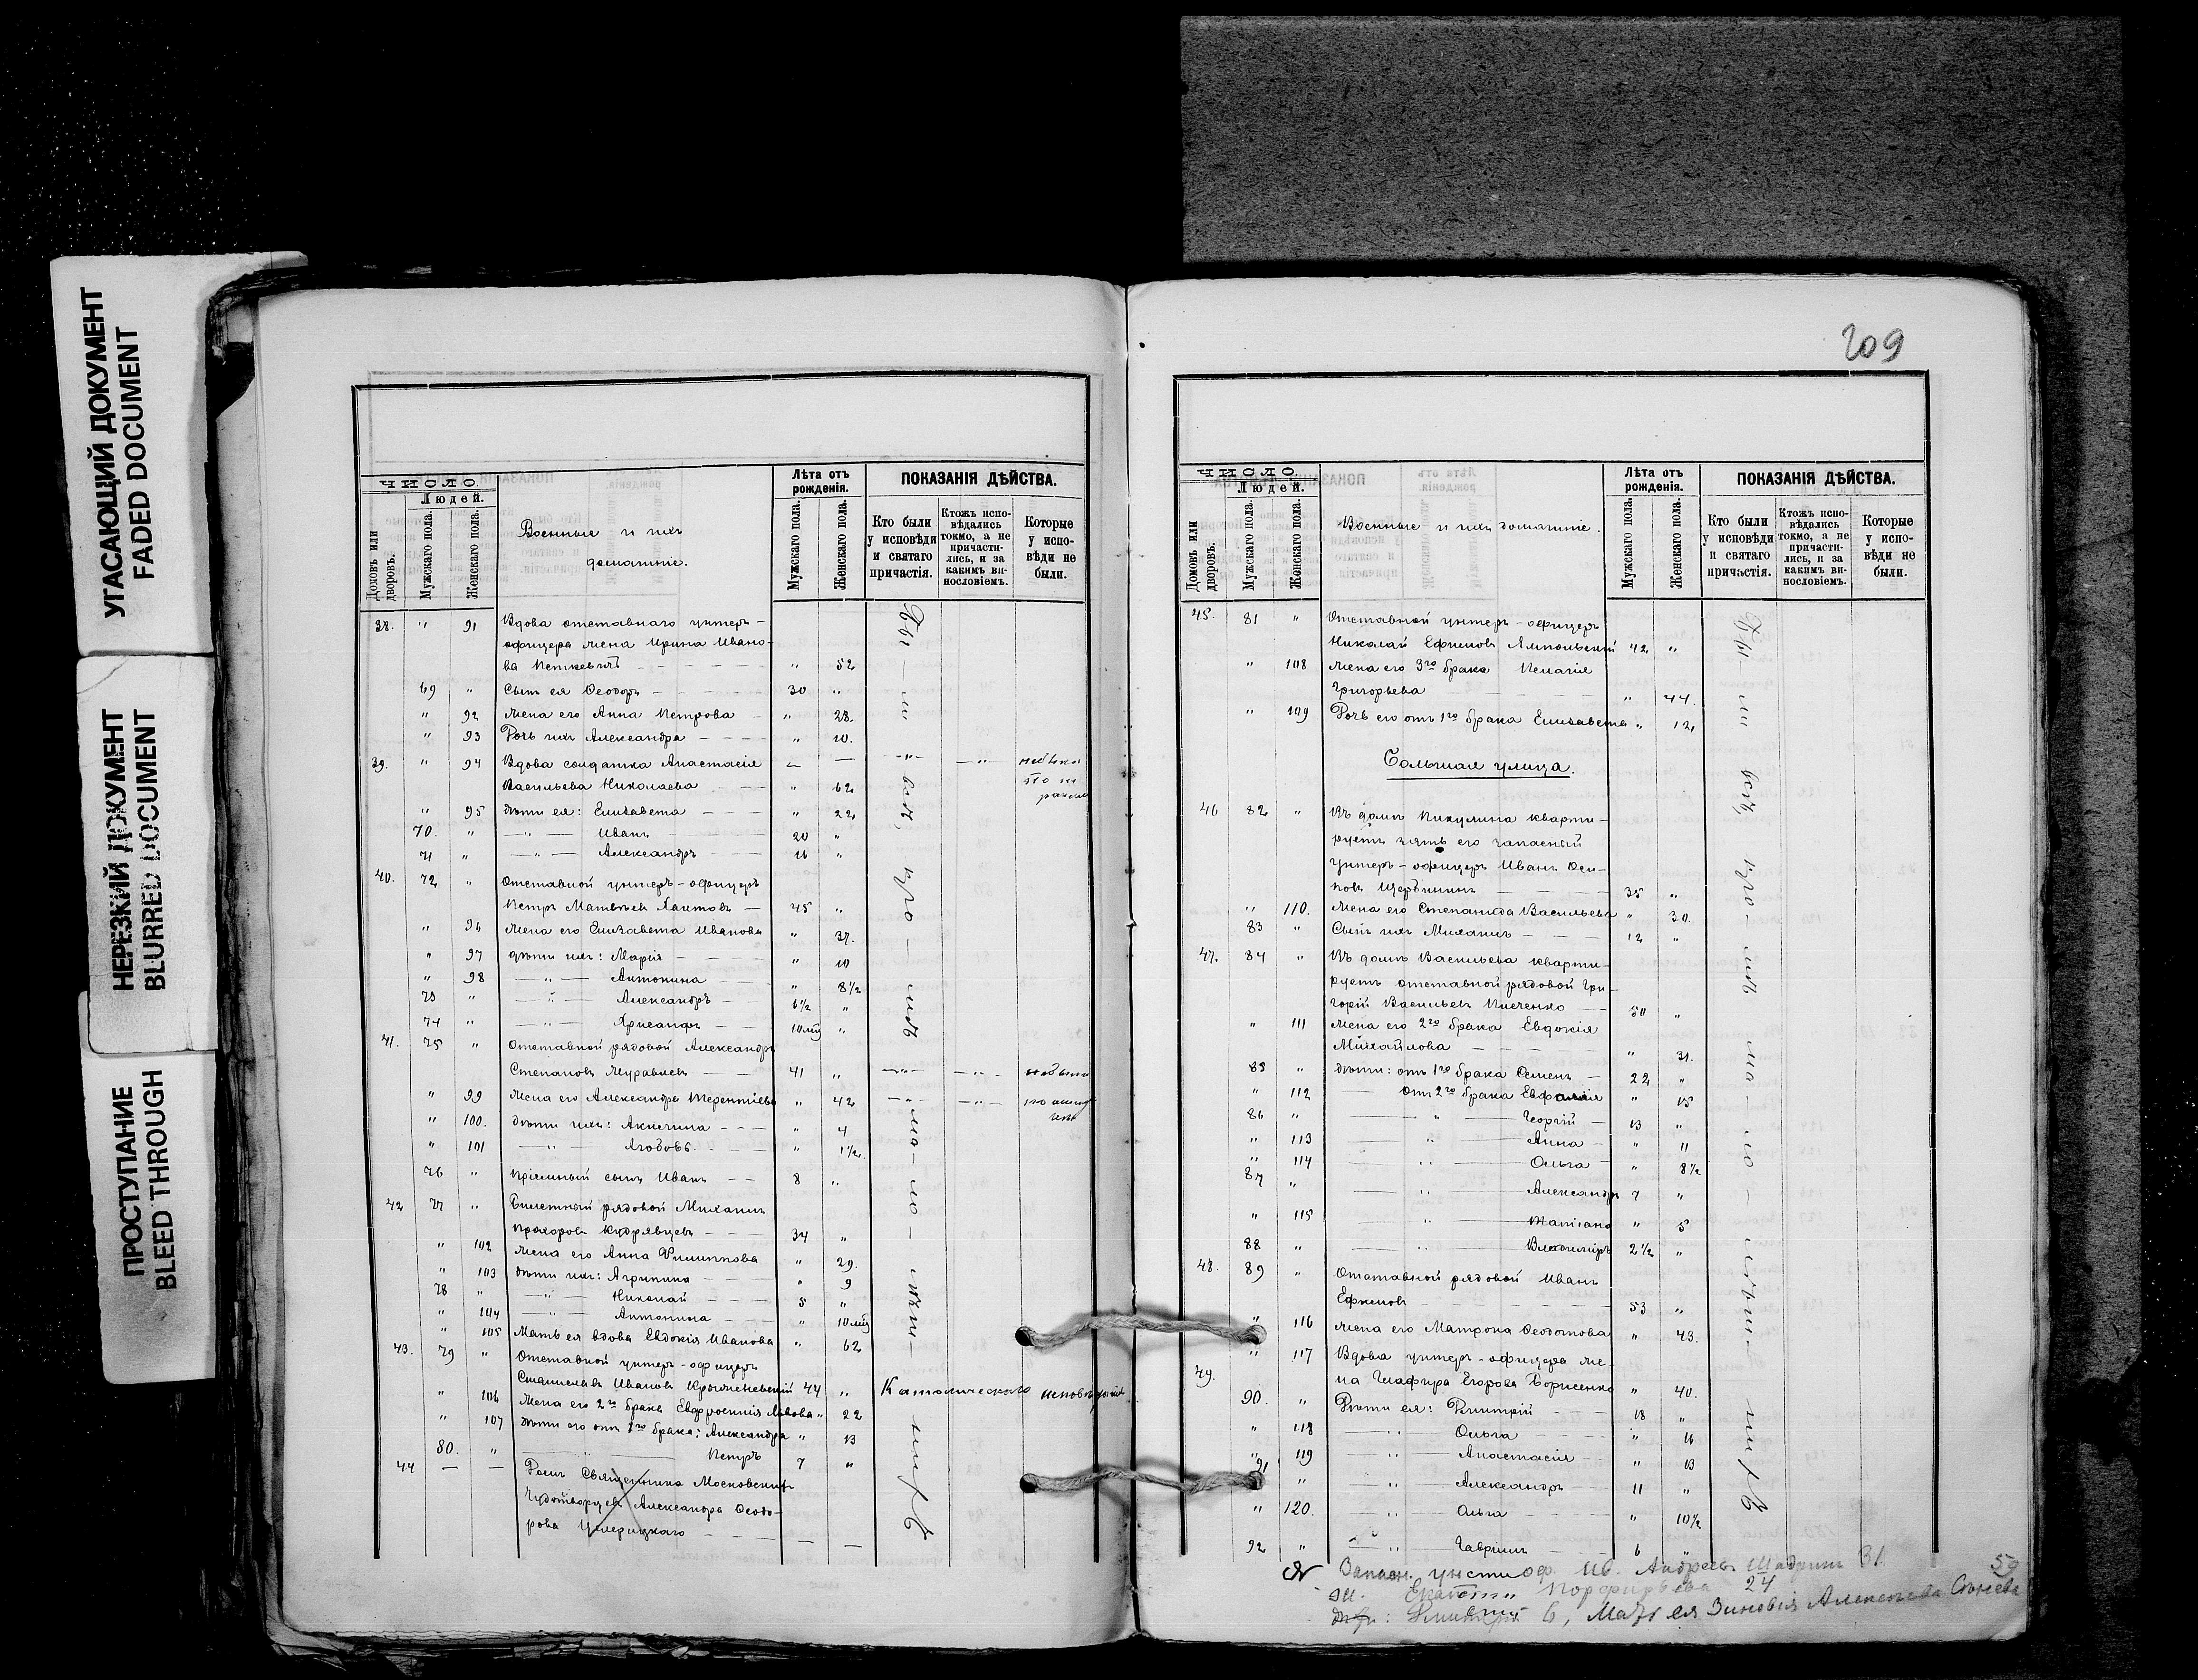 УГАСАЮЩИЙ ДОКУМЕНТ
FADED DOCUMENT
НЕРЕЗКИЙ ДОКУМЕНТ
BLURRED DOCUMENT
ПРОСТУПАНИЕ
BLEED THROUGH
ЧИСЛО.
Людей.
Домовъ или дворовъ.
Мужскаго пола.
Женскаго пола.
Военные и ихъ
домашніе.
Лѣта отъ рожденія.
Мужскаго пола.
Женскаго пола.
ПОКАЗАНІЯ ДѢЙСТВА.
Кто были у исповѣди и святаго причастія.
Ктожъ исповѣдались токмо, а не причастились, и за какимъ винословіемъ.
Которые у исповѣди не были.
38. " 91 Вдова отставнаго унтеръ-
офицера жена Ирина Ивано-
ва Петкевичъ " 52
69 " Сынъ ея Ѳеодоръ 30 "
" 92 Жена его Анна Петрова " 28.
" 93 Дочь ихъ Александра " 10.
39. " 94 Вдова солдатка Анастасія
Васильева Николаева " 62
" 95 Дѣти ея: Елисавета " 22
70. " Иванъ 20 "
71 " Александръ 16 "
40. 72 " Отставной унтеръ-офицеръ
Петръ Матвѣевъ 45 "
" 96 Жена его Елизавета Иванова " 37.
" 97 дѣти ихъ: Марія " 10
" 98 Антонина " 8½
73 " Александръ 6½ "
74 " Хрисанфъ 10 "
41. 75 " Отставной рядовой Александръ
Степановъ Муравьевъ 41 "
" 99 Жена его Александра Терентіева " 42
" 100. дѣти ихъ: Акилина " 4
" 101 Любовь. " 1½.
76 " Пріемный сынъ Иванъ 8 "
42 77 " Билетный рядовой Михаилъ
Прохоровъ Кудрявцевъ 34 "
" 102 Жена его Анна Филиппова " 29.
" 103 дѣти ихъ: Агрипина " 9
78 " Николай 5 "
" 104 Антонина " 10
" 105 Мать ея вдова Евдокія Иванова " 62
43. 79 " Отставной унтеръ-офицеръ
Станиславъ Ивановъ 44 " Католическаго исповѣданія
" 106 Жена его 2го брака Евфросинія Львова " 22
" 107 Дѣти его отъ 1го брака: Александра " 13
80. " Петръ 7 "
44 — — Домъ Священника Московскихъ
Чудотворцевъ Александра Ѳеодо-
рова — —
209
ЧИСЛО.
Людей.
Домовъ или дворовъ.
Мужскаго пола.
Женскаго пола.
Военные и ихъ домашніе.
Лѣта отъ рожденія.
Мужскаго пола.
Женскаго пола.
ПОКАЗАНІЯ ДѢЙСТВА.
Кто были у исповѣди и святаго причастія.
Ктожъ исповѣдались токмо, а не причастились, и за какимъ винословіемъ.
Которые у исповѣди не были.
45. 81 " Отставной унтеръ-офицеръ
Николай Ефимовъ 42 "
" 108 Жена его 3го брака Пелагія
Григорьева " 44.
" 109 Дочь его отъ 1го брака Елисавета " 12
Большая улица.
46 82 " Въ домѣ Пикулина кварти-
руетъ зять его запасный
унтеръ-офицеръ Иванъ Оси-
повъ Щербининъ 35 "
" 110. Жена его Степанида Васильева " 30.
83 " Сынъ ихъ Михаилъ 12 "
47. 84 " Въ домѣ Васильева кварти-
руетъ отставной рядовой Гри-
горій Васильевъ 50 "
" 111 Жена его 2го брака Евдокія
Михайлова " 31.
85 " Дѣти: отъ 1го брака Семенъ 22 "
" 112 Отъ 2го брака " 15
86 " Георгій 13 "
" 113 Анна " 11
" 114 Ольга " 8½
87 " Александръ 7 "
" 115 Татіана " 5
88 " Владиміръ 2½ "
48. 89 " Отставной рядовой Иванъ
Ефимовъ 53 "
" 116 Жена его Матрона Ѳеодотова " 43.
49. " 117 Вдова унтеръ-офицера же-
на Глафира Егорова Борисенко " 40.
90. " Дѣти ея: Димитрій 18 "
" 118 Ольга " 16
" 119 Анастасія " 13
91 " Александръ 11 "
" 120. Ольга " 10½
92 " Гавріилъ 6 "
Запасн. унт. оф. Ив. Андреевъ Шадринъ 31
ж. Порфирьева 24
6, Мать ея Зиновія Алексѣева 59